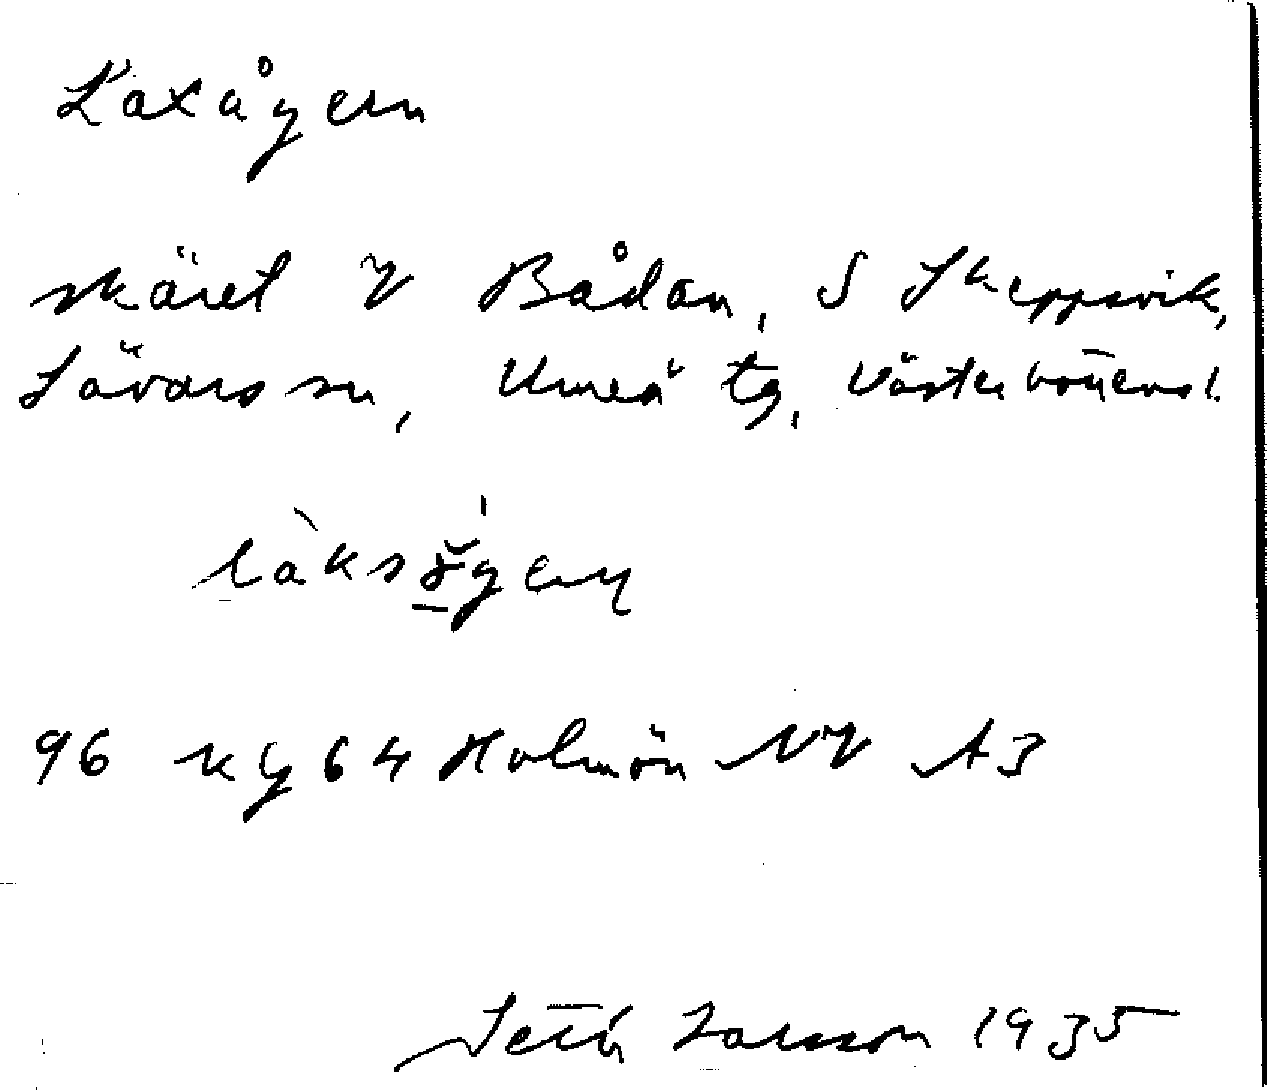 Laxågern
skäret V Bådan, S Skeppsvik,
Sävars sn, Umeå tg, Västerbottens l.
96 Kg 64 Holmön NV A3
Seth Larsson 1935